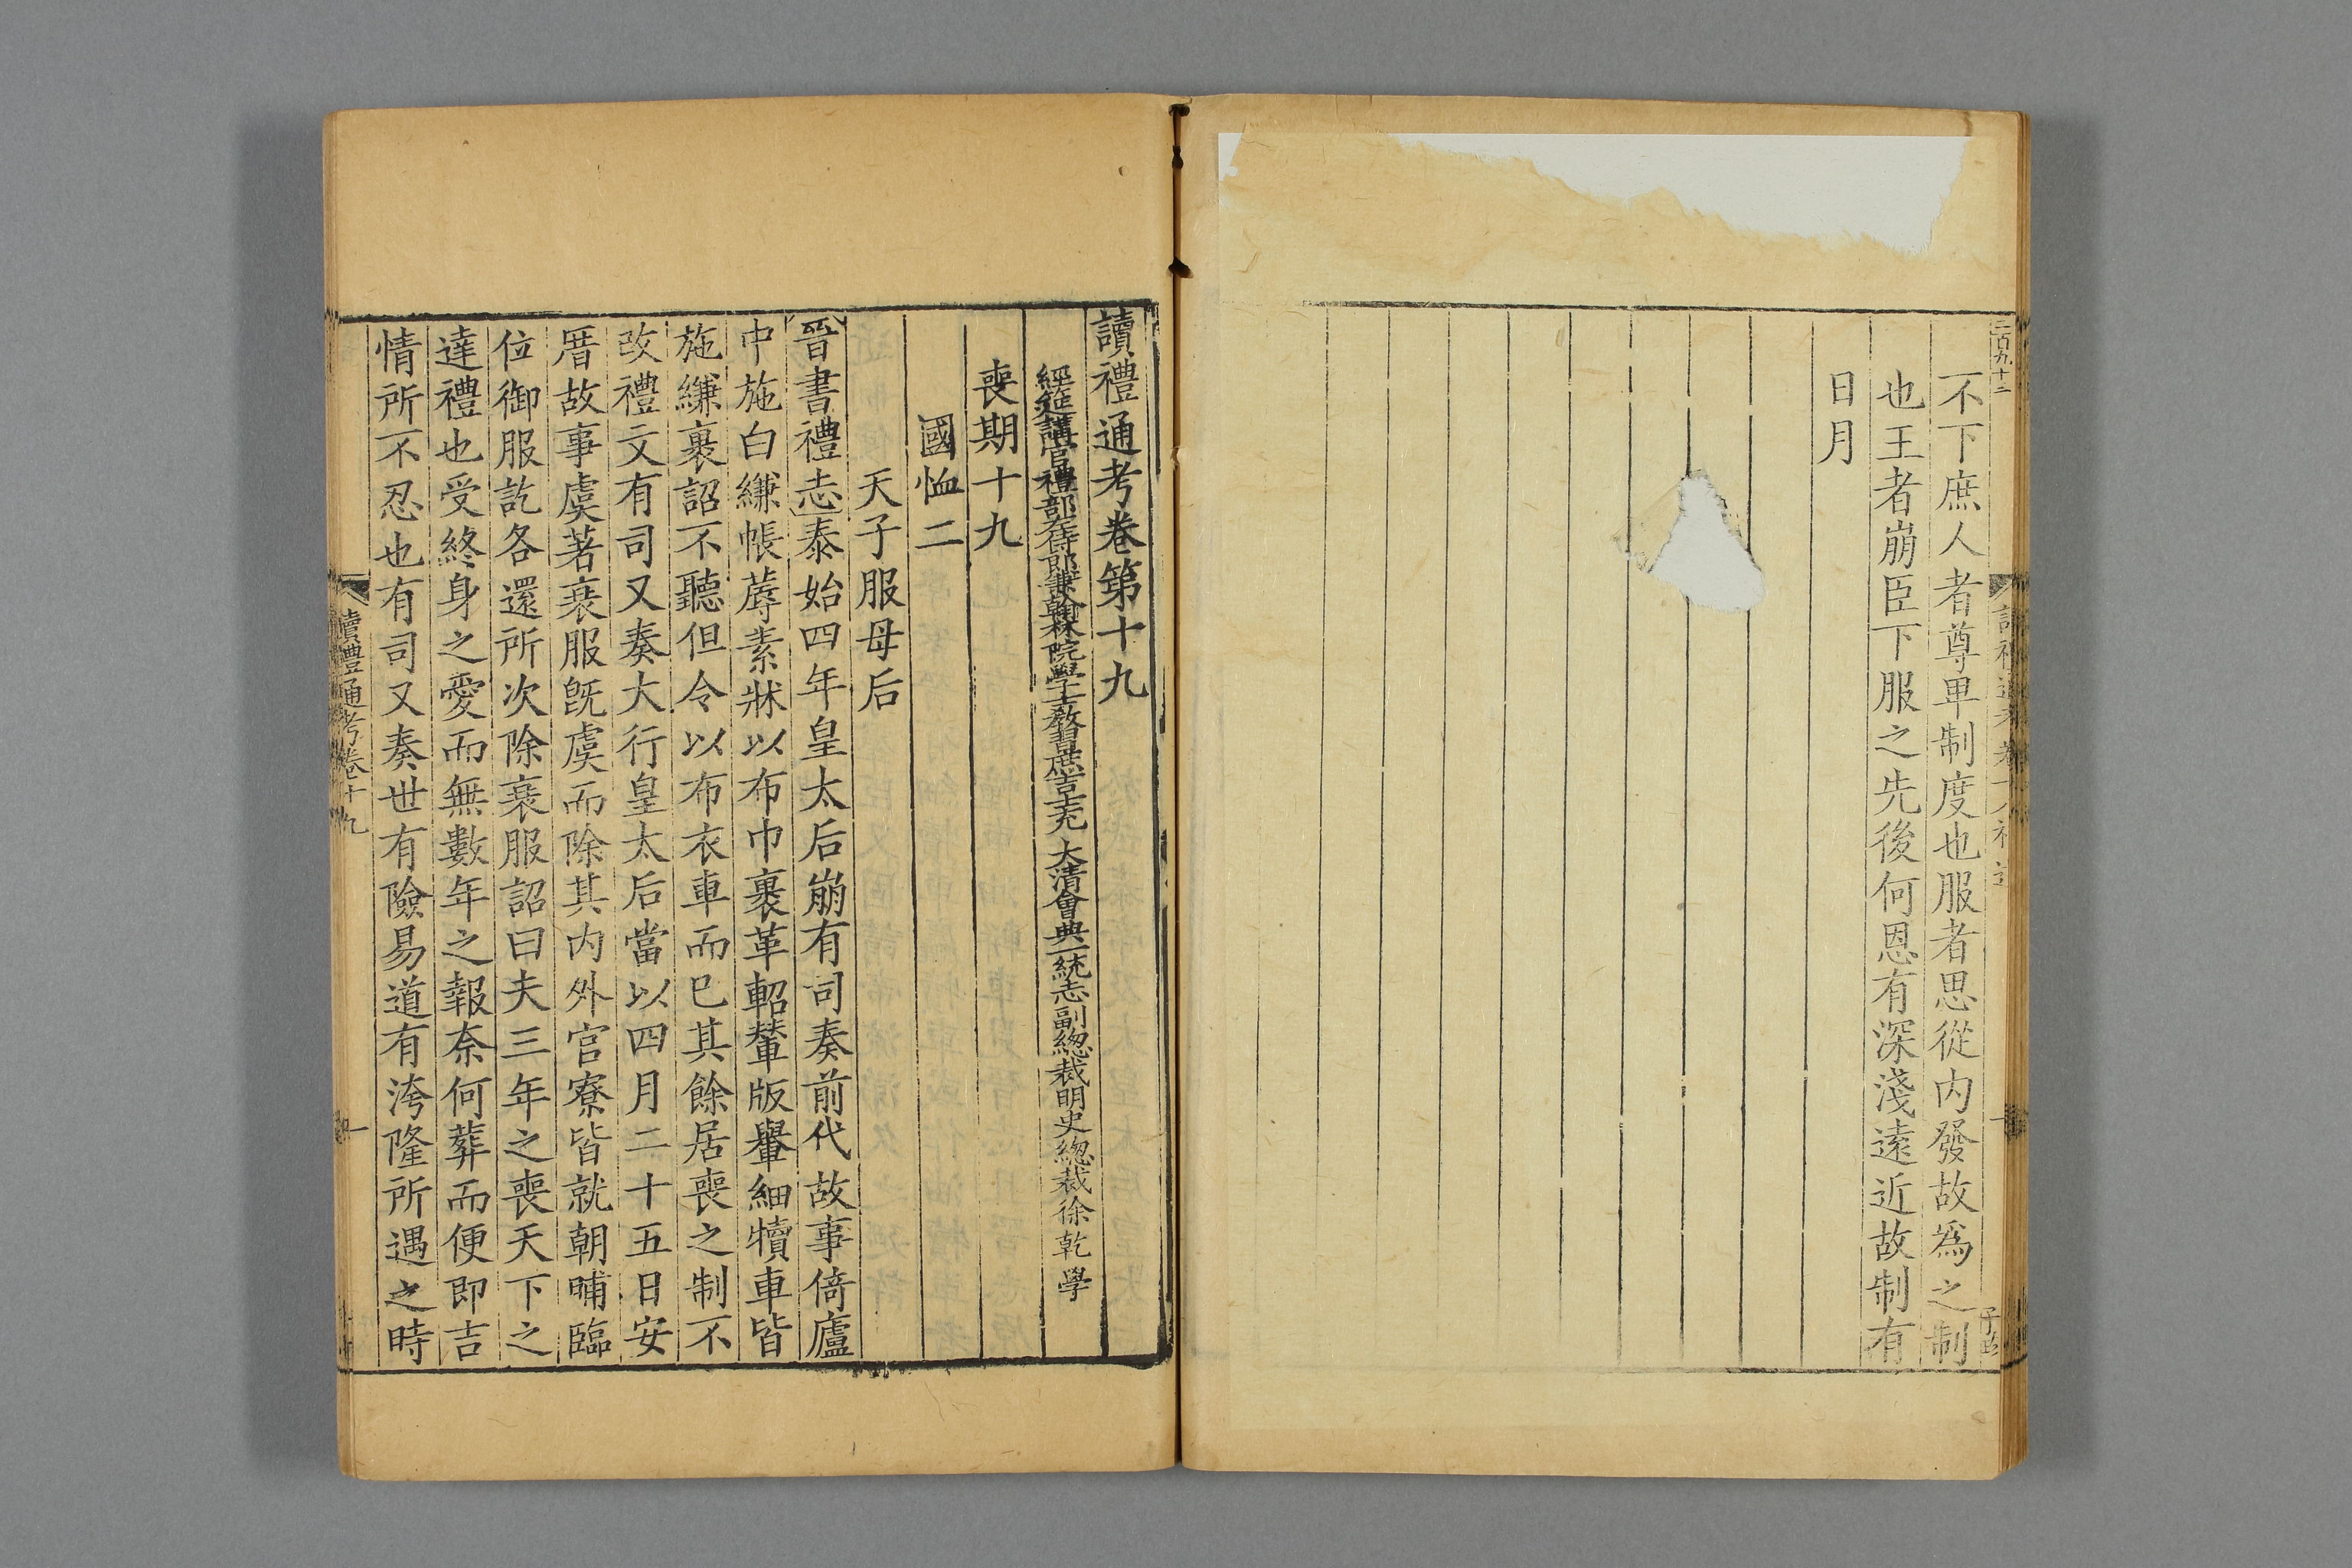 不下庶人者尊卑制度也服者思從内發故爲之制
也王者崩臣下服之先後何恩有深淺遠近故制有
日月
二百九十二
讀禮通考卷第十九
經筵講官禮部左侍郎兼翰林院學士教習庶吉士充大清會典一統志副總裁明史總裁徐乾學
喪期十九
國恤二
天子服母后
晉書禮志泰始四年皇太后崩有司奏前代故事倚廬
中施白縑帳蓐素牀以布巾裹革軺輦版轝細犢車皆
施縑裹詔不聽但令以布衣車而已其餘居喪之制不
改禮文有司又奏大行皇太后當以四月二十五日安
厝故事虞著衰服旣虞而除其内外官寮皆就朝晡臨
位御服訖各還所次除衰服詔曰夫三年之喪天下之
達禮也受終身之愛而無數年之報奈何葬而便即吉
情所不忍也有司又奏世有險易道有洿隆所遇之時
讀禮通考卷十九
一